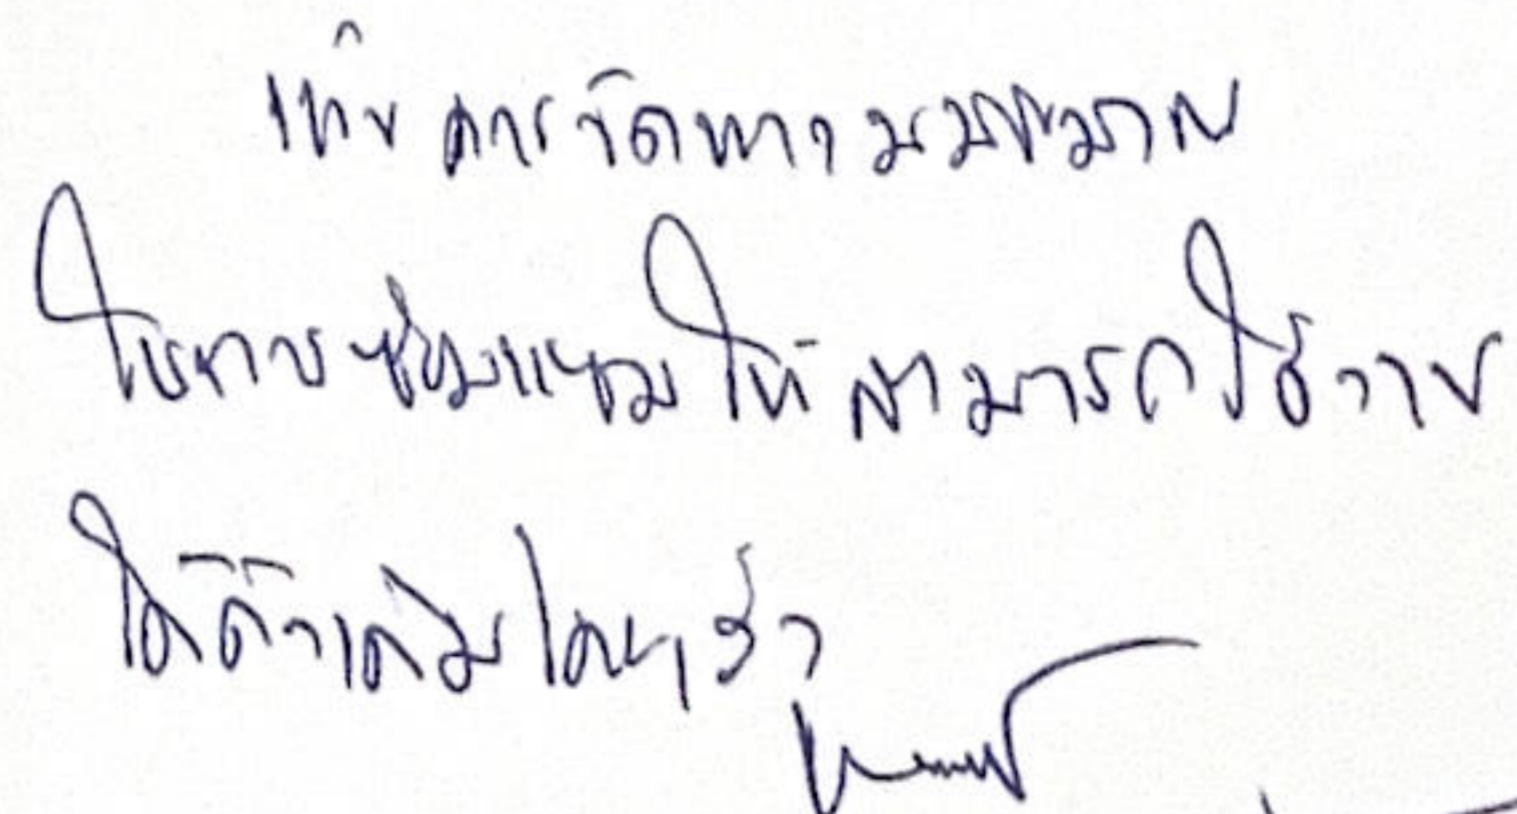 เห็นควรจัดหางบประมาณ
ในการซ่อมแซมให้สามารถใช้งาน
ได้ดังเดิมโดยเร็ว